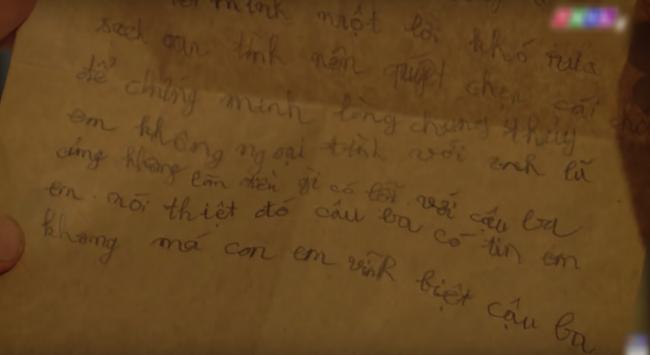 mình một lời khó rửa
sạch oan tình nên quyết chọn cái
để chứng minh lòng chung thủy
em không ngoại tình với anh lũ
cũng không làm điều gì có lỗi với cậu ba
em nói thiệt đó cậu ba có tin em
không má con em vĩnh biệt cậu ba